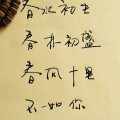 春水初生
春林初盛
春风十里
不如你